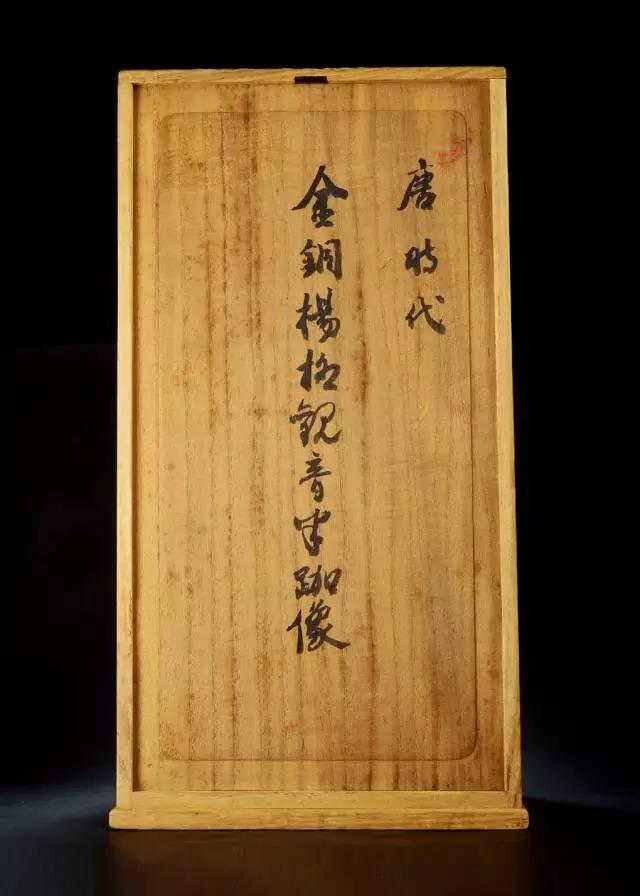 唐時代
金銅楊柳觀音半跏像